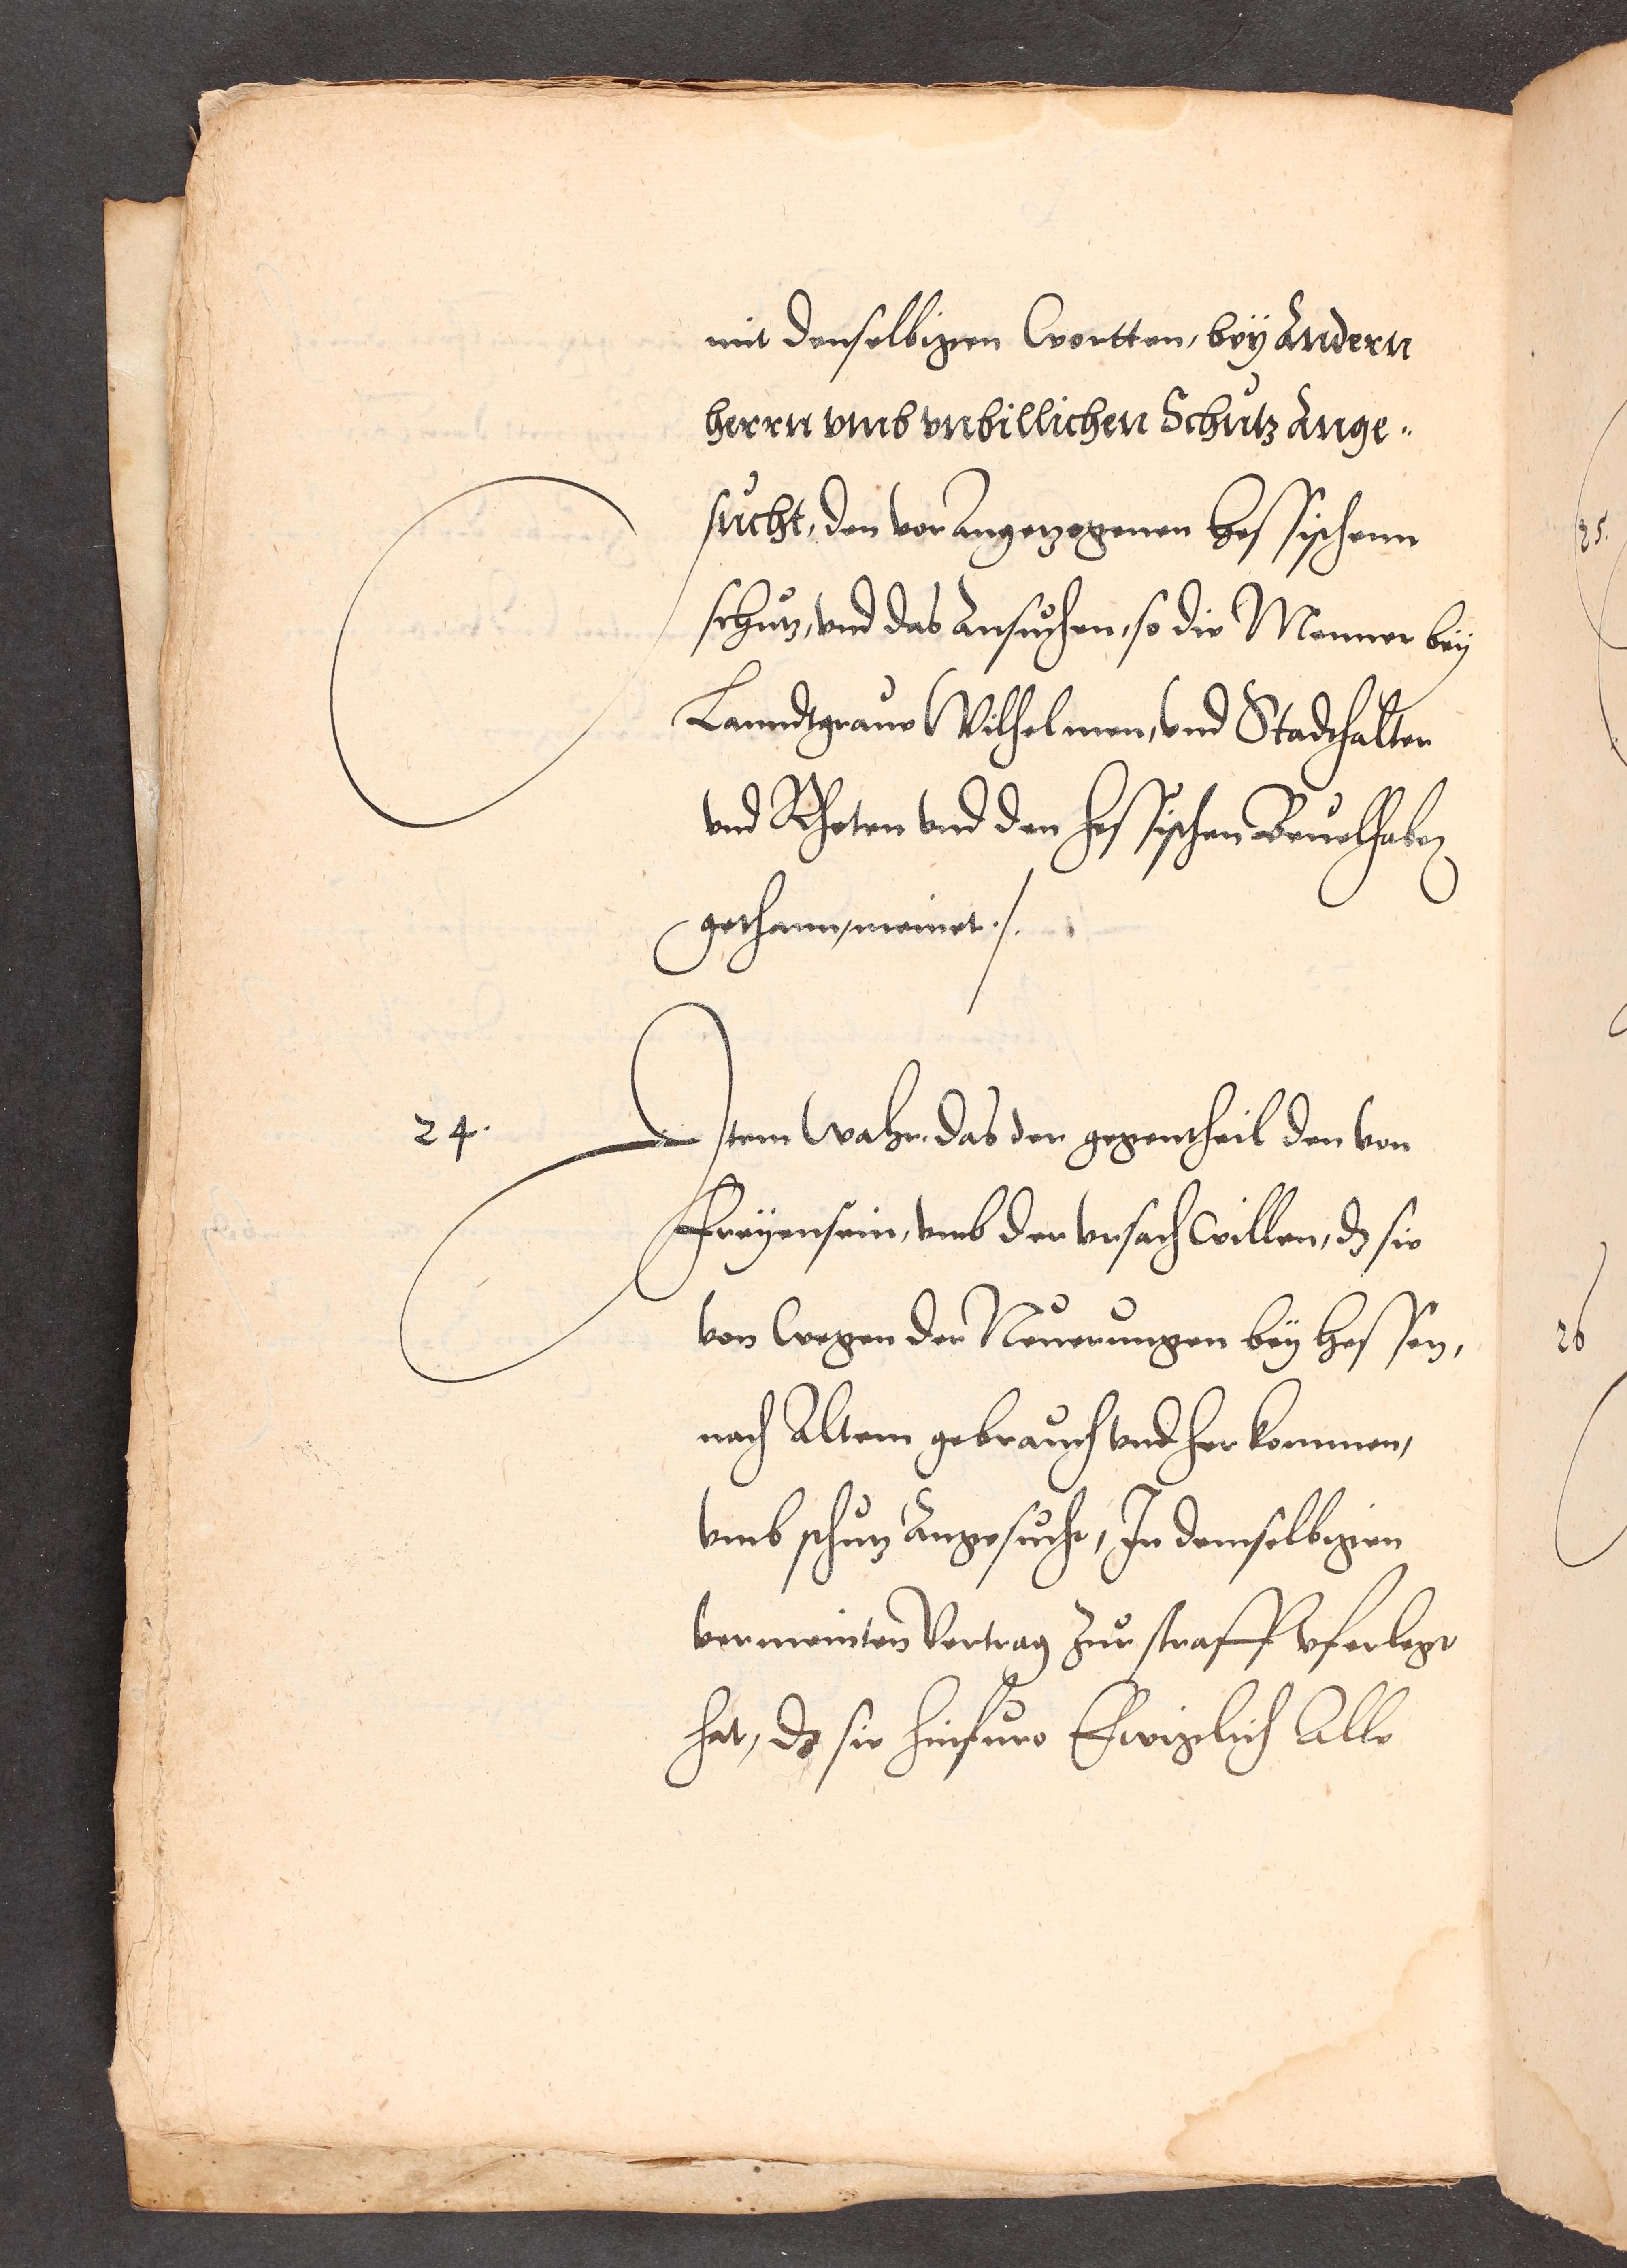 mit denselbigenn Wortten, beÿ Andern
herrn vmb vnbillichen Schutz Ange-
sucht, den vor Angezogenen Hessischenn
schutz, vnd das Ansuchen, so die Menner beÿ
Lanndtgraue Wilhelmen, vnd Stadthalter
vnd Rheten vnd den hessischen Beuelhaber
gethann, meinet ./.
24.
Item Wahr das der gegentheil den von
Freÿensein, vmb der vrsach willen, dz sie
von wegen der Neuerungen beÿ Hessen,
nach Altem gebrauch vnd herkommen,
vmb schutz Angesucht, In demselbigen
vermeinten Vertrag zur straff vferlegt
hat, dz sie hinfuro Ewiglich Alle
25.
26